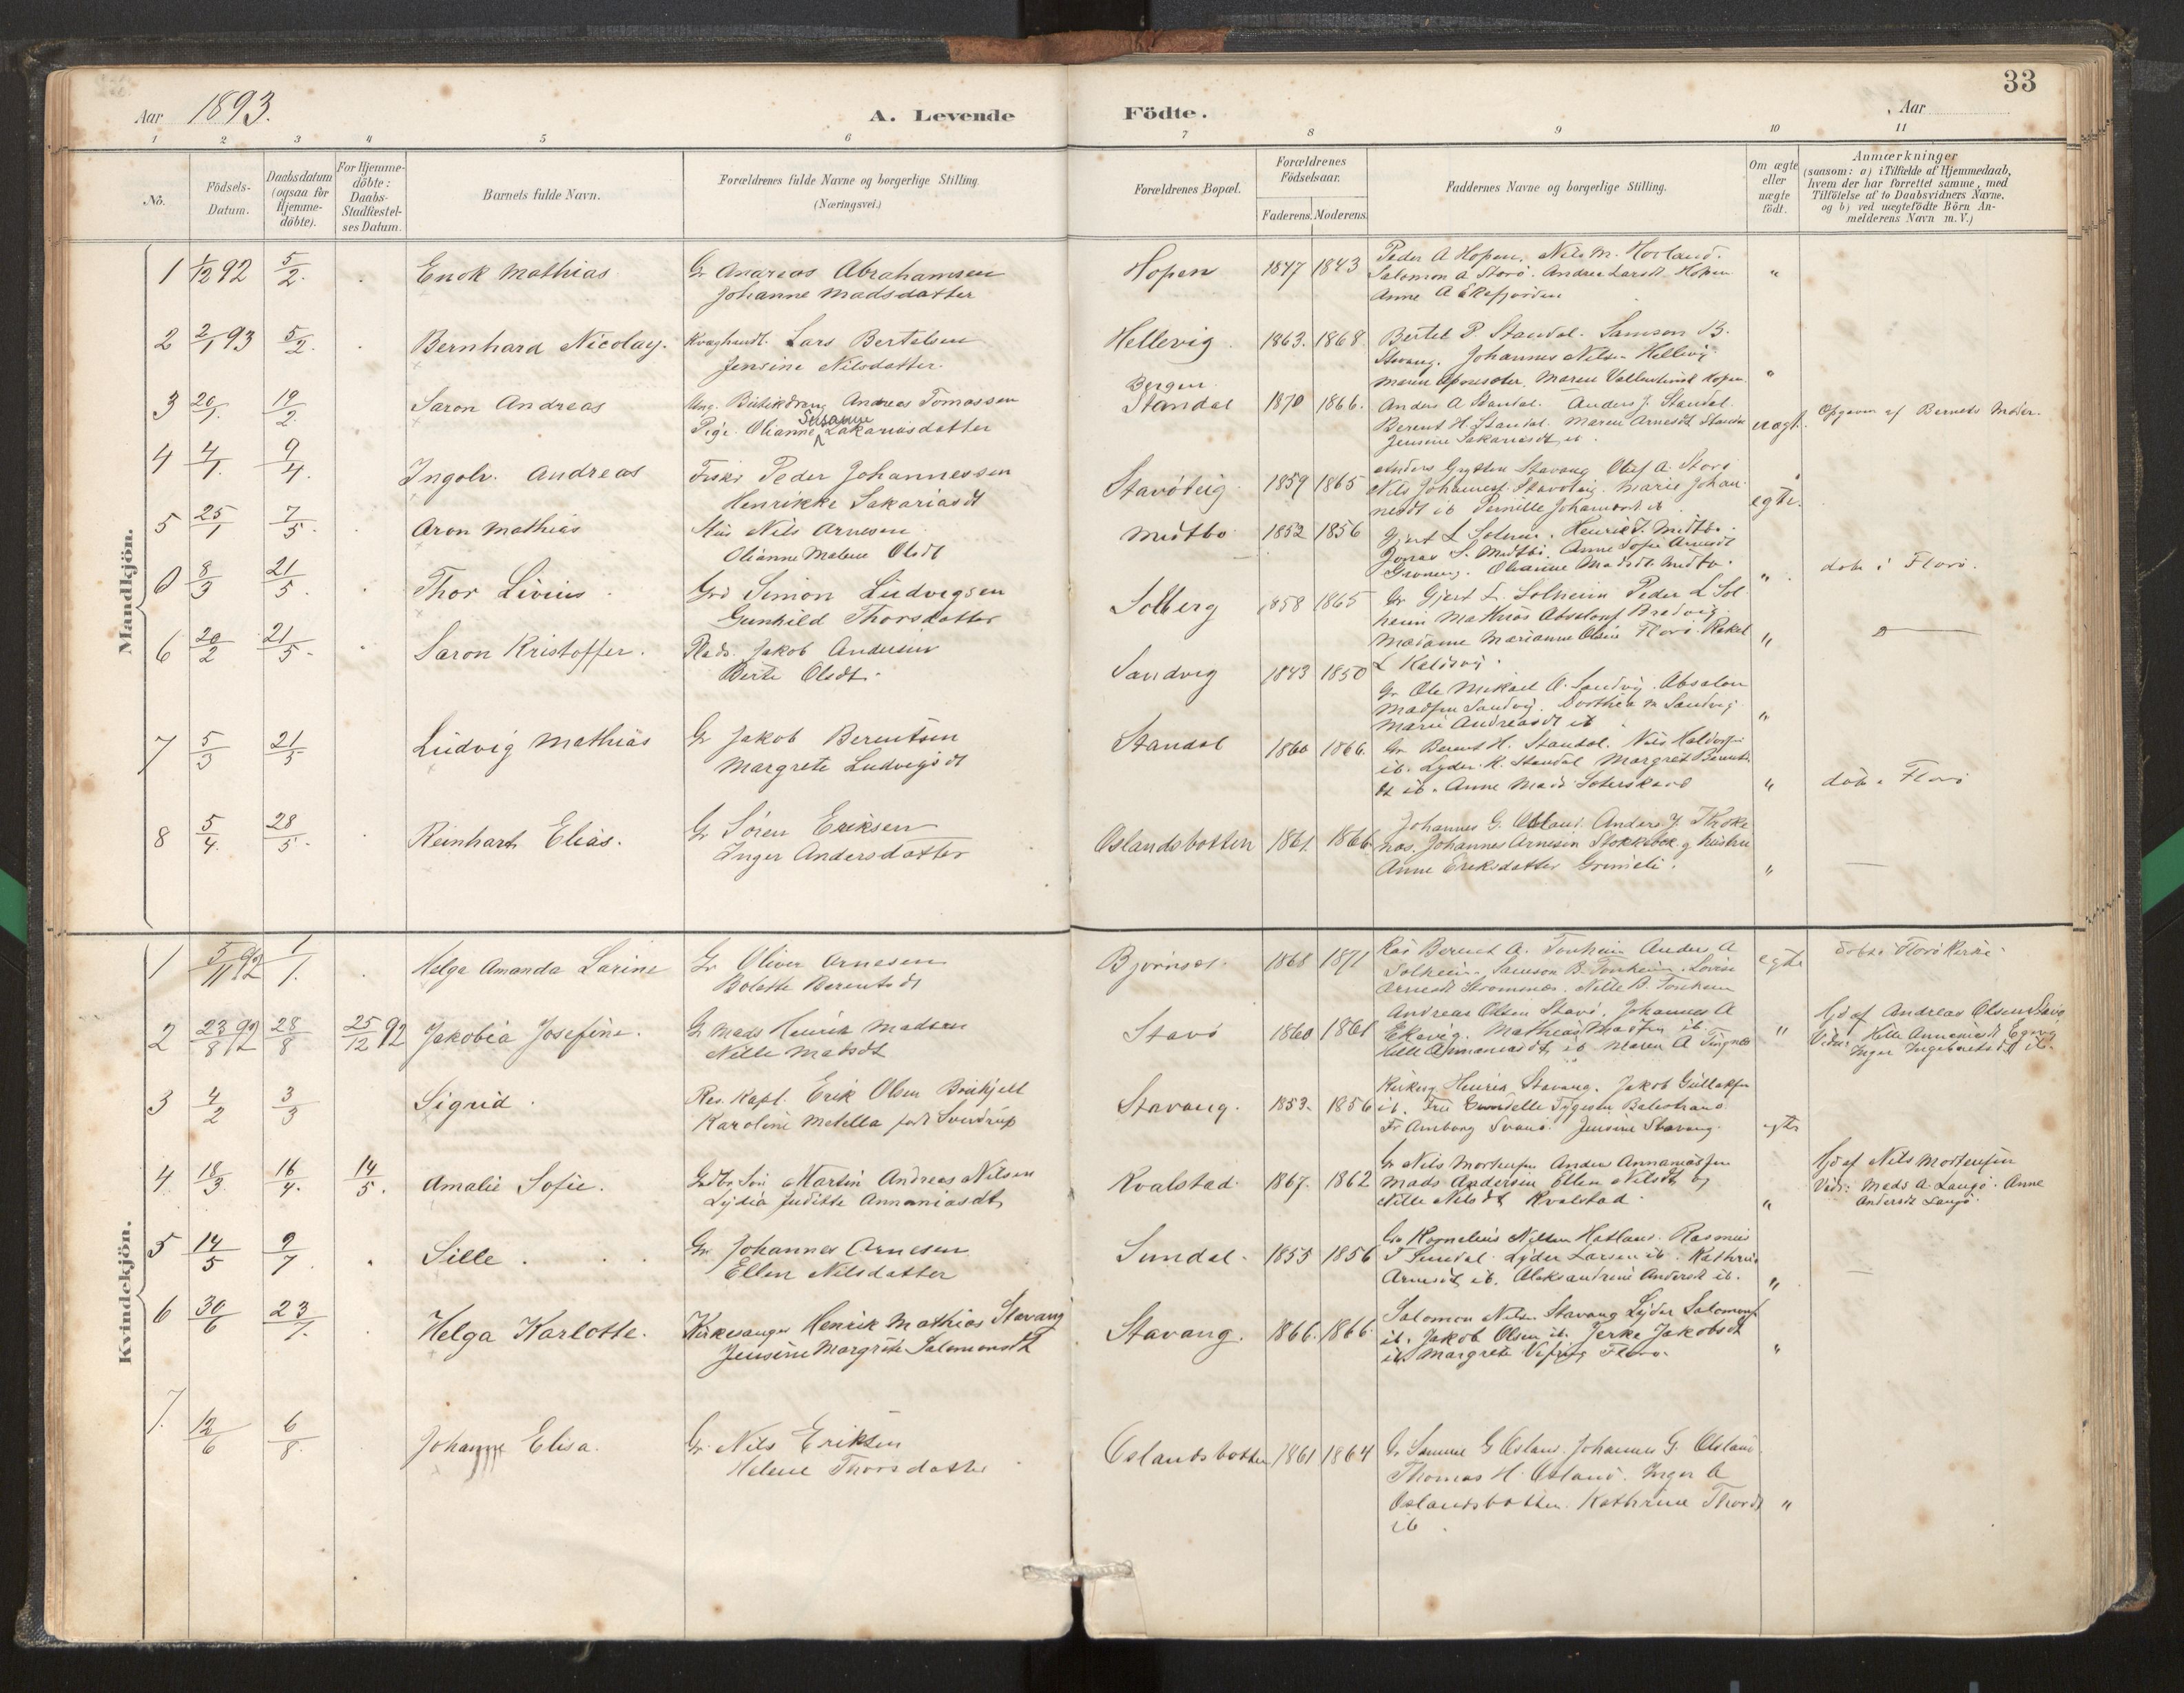 33
Aar 1893.
A. Levende
Födte.
Aar
1 2 3 4 5 6 7 8 9 10 11
No.
Födsels-
Datum.
Daabsdatum
(ogsaa for
Hjemme-
döbte).
For Hjemme-
döbte:
Daabs-
Stadfæstel-
ses Datum.
Barnets fulde Navn.
Forældrenes fulde Navne og borgerlige Stilling.
(Næringsvei.)
Forældrenes Bopæl.
Forældrenes
Födselsaar.
Faderens. Moderens.
Faddernes Navne og borgerlige Stilling.
Om ægte
eller
uægte
födt.
Anmærkninger
(saasom: a) i Tilfælde af Hjemmedaab,
hvem der har forrettet samme, med
Tilföielse af to Daabsvidners Navne,
og b) ved uægtefödte Börn An-
melderens Navn m.V.)
Mandkjön.
1 1/12 92 5/2. Enok Mathias Gr Andreas Abrahamsen
Johanne Madsdatter
Hopen 1847 1843 Peder A Hopen. Nils M. Hovland.
Salomon A Storö. Andrea Larsdt. Hopen "
Anne A Ekefjorden
2 2/1 93 5/2. Bernhard Nicolay. Lars Bertelsen
Jensine Nilsdatter.
Hellevig 1863. 1868 Bertel P Standal. Samson B.
Stavang. Johannes Nilsen Hellevig
"
3 20/1. 19/2. Saron Andreas Ung. Andreas Tomassen
Susanne
Pige. Olianne Zakariasdatter
Bergen
Standal 1870 1866. Anders A Standal. Anders J. Standal.
Berent H. Standal. Maren Arnesdt Standal uægt. Opgaven af Barnets Moder.
Jensine Sakariasdt ib.
4 4/1. 9/4. Ingolv. Andreas Fisker Peder Johannessen
Henrikke Sakariasdt
Stavöteig 1859 1865 Anders Stavang Olaf A. Storö
Nils Johannes. Stavöteig. Marie Johan-
nesdt ib Pernille Johannesdt ib ægte.
5 25/1 7/5. Aron Mathias Nils Arnesen
Olianne Malene Olsdt
Midtbö 1852 1856 Gjert L Solheim. Henrik J. Midtbö.
Jonas S. Midtbö. Anne Sofie Arnesdt
Olianne Madsdt. Midtbö. " döbt i Florö.
6 8/3 21/5. Thor Livius. Grd Simon Ludvigsen
Gunhild Thorsdatter
Solberg 1858 1865 Gr Gjert L. Solheim Peder L Sol-
heim Mathias Absalons Bredvig.
Madame Marianne Olsen Florö. Rakel "
L Kalsvig.
6 20/2 21/5. Saron Kristoffer. Plads. Jakob Andersen
Berte Olsdt.
Sandvig 1843 1850 Gr Ole Mikael A. Sandvig. Absalon
Madsen Sandvig. Dorthea M Sandvig
Marie Andreasdt ib "
7 5/3 21/5 Ludvig Mathias Gr Jakob Berentsen
Margrete Ludvigsdt
Standal 1860 1866. Gr Berent H. Standal. Nils Haldorsen
ib. Lyder K. Standal Margret Berents-
dt ib. Anne " döbt i Florö
8 5/4. 28/5. Reinhart Elias. Gr Sören Eriksen
Inger Andersdatter
Oslandsbotten 1861. 1866. Johannes G. Osland. Anders J.
Johannes Arnesen Stokkebek
Anne Eriksdatter Grimeli. "
Kvindekjön.
1 5/11 92 1/1. Helga Amanda Larine Gr Oliver Arnesen
Bolette Berentsdt
Björnset. 1868 1871 Berent A. Tonheim Anders A
Solheim. Samson B. Tonheim. Lovise
Arnesdt Strömmen. Nille B. Tonheim ægte döbt i Florö Kirke
2 23/8 92 28/8 25/12 92 Jakobia Josefine. Gr Mads Henrik Madsen
Nille Madsdt
Stavö 1860 1861 Andreas Olsen Stavö. Johannes A
Ekevig. Mathias Madsen ib.
Hille Annaniasdt ib Maren A Tingnes " hjd af Andreas Olsen Stavö
Vidn: Hille Annaniasdt
Inger Ingebretsdt ib.
3 4/2 3/3 Sigrid. Res. Kapl. Erik Olsen
Karoline Metella född Sverdrup
Stavang. 1853. 1856 Kirkesg Henrik Stavang. Jakob Gullaksen
ib. Balestrand
Fr Amborg Svanö. Jensine Stavang. ægte
4 18/3 16/4. 14/5. Amalie Sofie. Gdbr Sön Martin Andreas Nilsen
Lydia Juditte Annaniasdt
Kvalstad 1867. 1862 Gr Nils Mortensen Anders Annaniassen
Mads Andersen Ellen Nilsdt og
Nille Nilsdt Kvalstad. " hjd af Nils Mortensen
Vidn: Mads A. Langö. Anne
Andersdt Langö.
5 14/5 9/7. Sille. Gr. Johannes Arnesen
Ellen Nilsdatter
Sundal. 1855 1856 Gr Kornelius Nilsen Hatland. Rasmus
T Sundal. Lyder Larsen ib. Kathrine
Arnesdt ib. Aleksandrine Andersdt ib. "
6 30/6 23/7. Helga Karlotte. Kirkesanger Henrik Mathias Stavang
Jensine Margrete Salomonsdt
Stavang. 1866. 1866. Salomon Nilsen Stavang Lyder Salomons.
ib. Jakob Olsen ib. Jerke Jakobsdt
ib Margrete Florö. "
7. 12/6 6/8. Johanne Elisa. Gr. Nils Eriksen
Helene Thorsdatter
Oslandsbotten 1861 1864 Gr Samuel G Osland. Johannes G. Osland.
Thomas H. Osland. Inger A
Oslandsbotten. Kathrine Thorsdt "
ib.